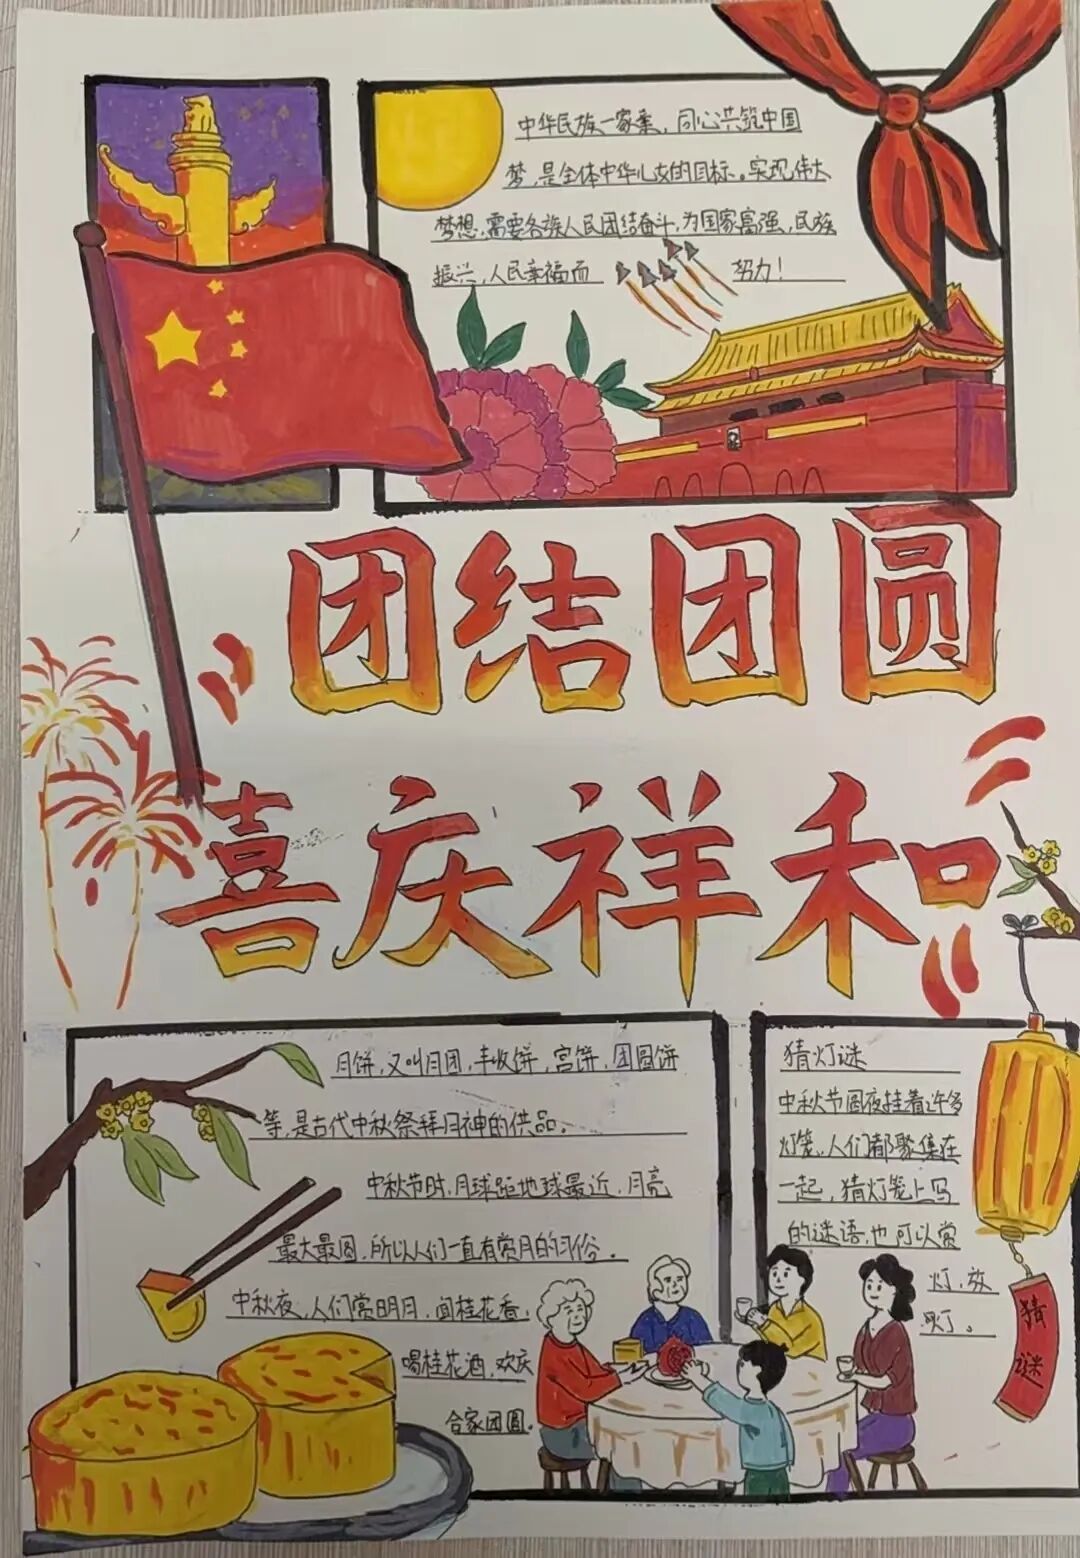 中华民族一家亲，同心共筑中国
梦，是全体中华儿女的目标。实现伟大
梦想，需要各族人民团结奋斗，为国家富强，民族
振兴，人民幸福而努力！
团结团圆
喜庆祥和
月饼，又叫月团，丰收饼，宫饼，团圆饼
等，是古代中秋祭拜月神的供品。
中秋节时，月球距地球最近，月亮
最大最圆，所以人们一直有赏月的习俗。
中秋夜，人们赏明月，闻桂花香，
喝桂花酒，欢庆
合家团圆。
猜灯谜
中秋节圆夜挂着许多
灯笼，人们都聚集在
一起，猜灯笼上写
的谜语，也可以赏
灯，放
灯。
猜
谜